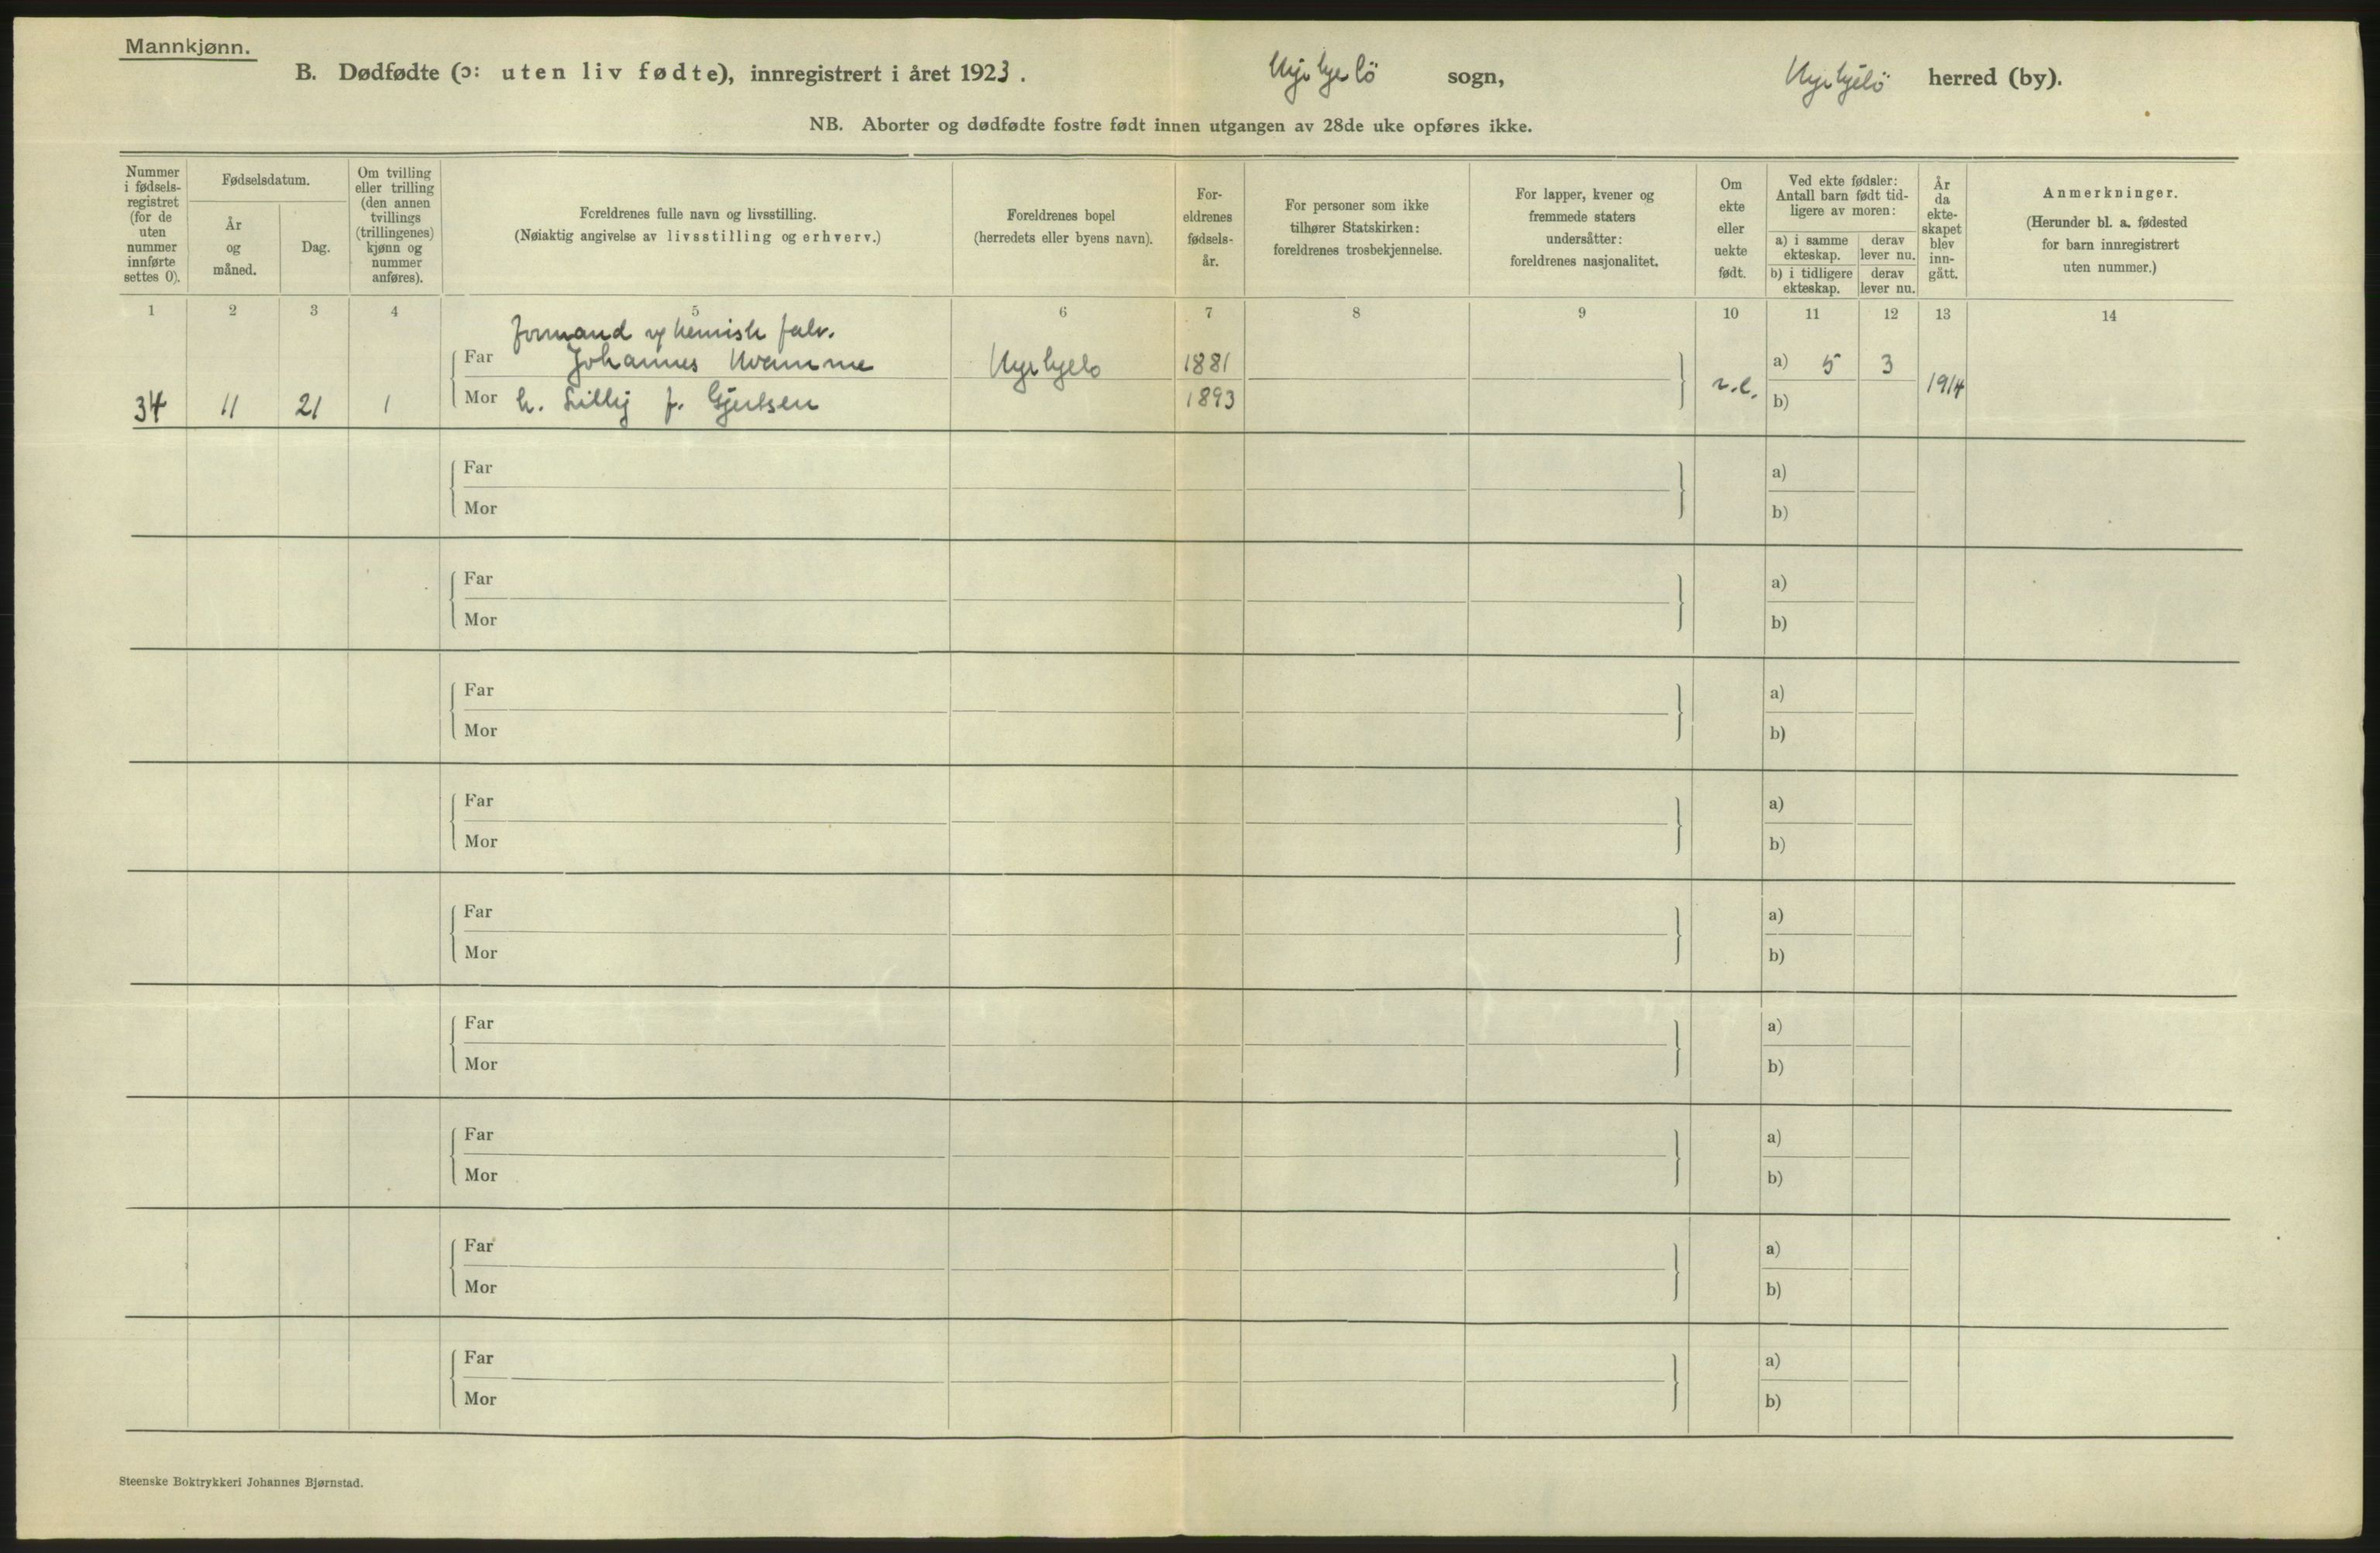 Mannkjønn.
B. Dødfødte (ɔ: uten liv fødte), innregistrert i året 1923. sogn, herred (by).
NB. Aborter og dødfødte fostre født innen utgangen av 28de uke opføres ikke.
Nummer i fødsels-registret (for de uten nummer innførte settes 0).
Fødselsdatum.
År og måned.
Dag.
Om tvilling eller trilling (den annen tvillings (trillingenes) kjønn og nummer anføres).
Foreldrenes fulle navn og livsstilling.
(Nøiaktig angivelse av livsstilling og erhverv.)
Foreldrenes bopel
(herredets eller byens navn).
For-eldrenes fødsels-år.
For personer som ikke tilhører Statskirken: foreldrenes trosbekjennelse.
For lapper, kvener og fremmede staters undersåtter: foreldrenes nasjonalitet.
Om ekte eller uekte født.
Ved ekte fødsler: Antall barn født tid-ligere av moren:
a) i samme ekteskap.
derav lever nu.
b) i tidligere ekteskap.
derav lever nu.
År da ekte-skapet blev inn-gått.
Anmerkninger.
(Herunder bl. a. fødested for barn innregistrert uten nummer.)
1 2 3 4 5 6 7 8 9 10 11 12 13 14
formand
Far Johannes Kvamme 1881 a) 5 3
34 11 21 1 Mor h. Lilly f. Gjertsen 1893 b) 1914
Far a)
Mor b)
Far a)
Mor b)
Far a)
Mor b)
Far a)
Mor b)
Far a)
Mor b)
Far a)
Mor b)
Far a)
Mor b)
Far a)
Mor b)
Far a)
Mor b)
Steenske Boktrykkeri Johannes Bjørnstad.